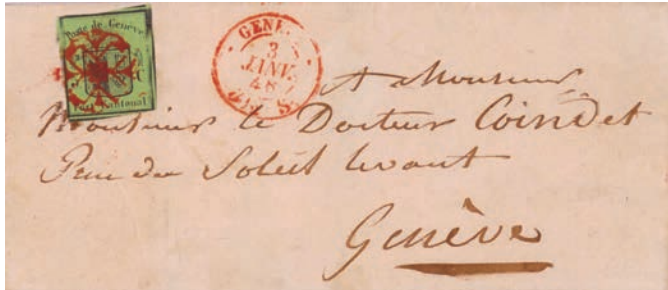 Poste de Genève
Port Cantonal
GENÈVE
3
JANV.
48
A Monsieur
Monsieur le Docteur Coindet
Rue du Soleil levant
Genève